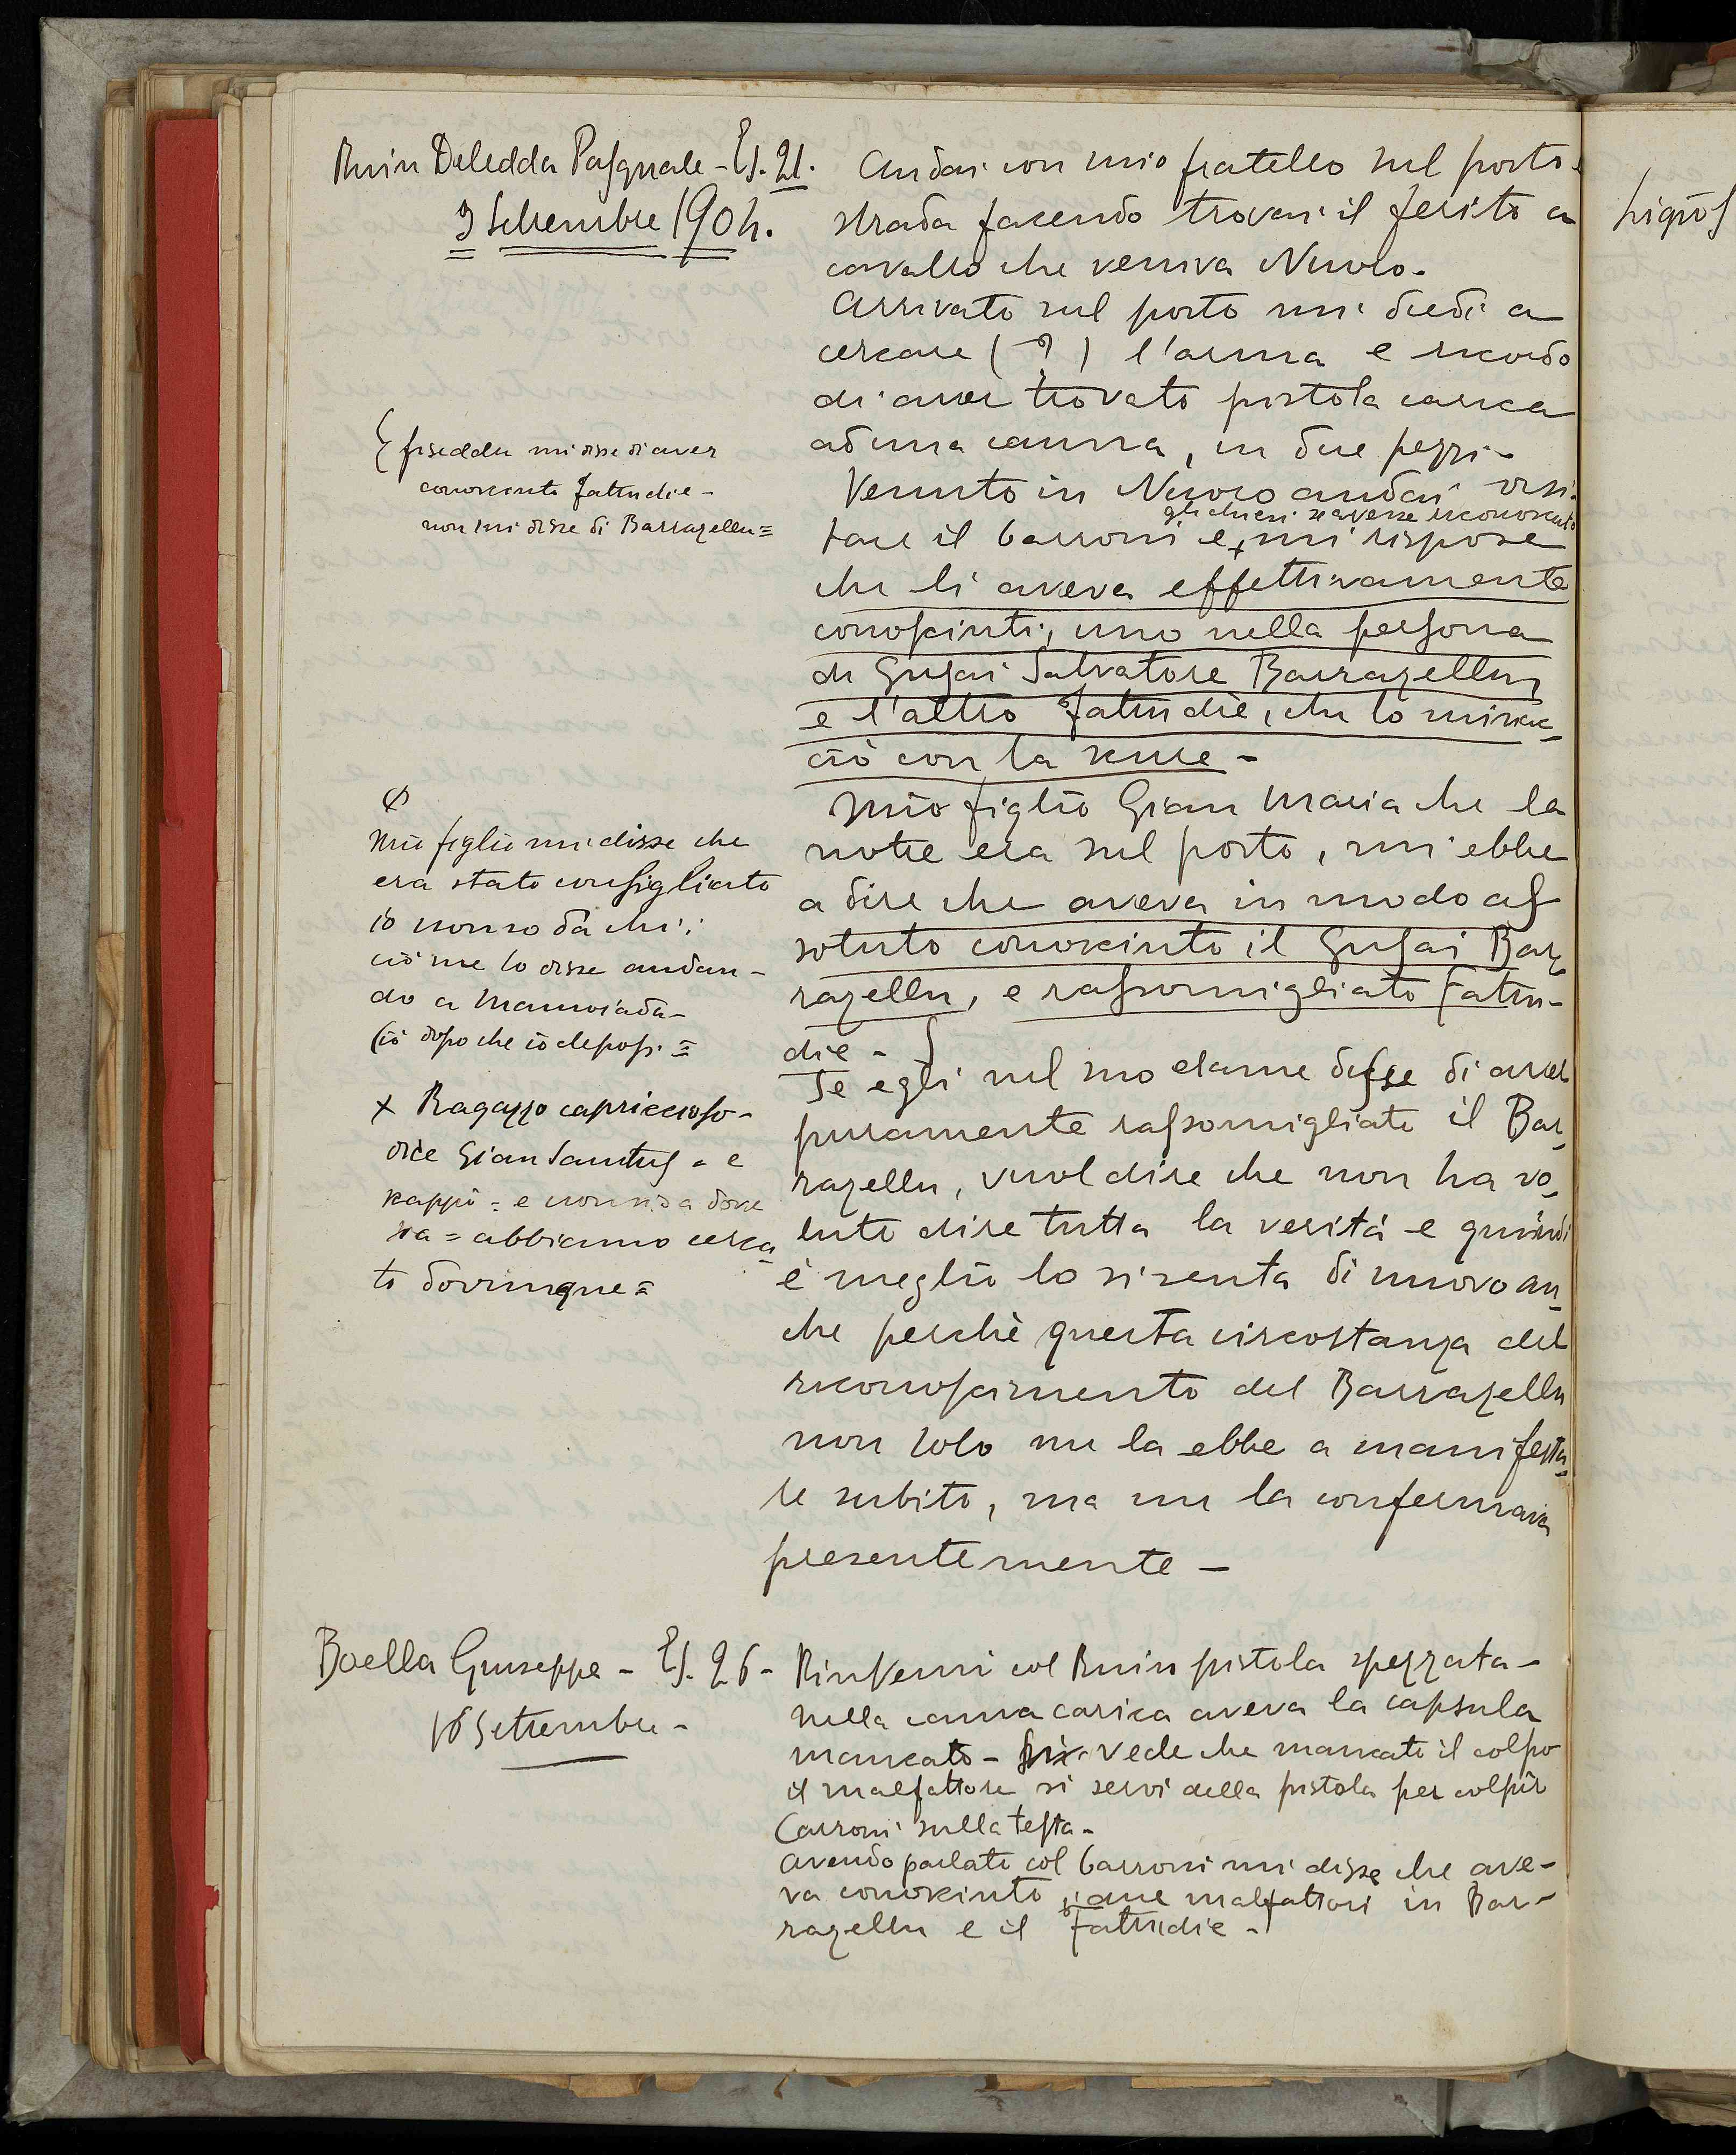 Ruiu Deledda Pasquale - Es. 21.
9 Settembre 1904.
Andai con mio fratello sul posto e
strada facendo trovai il ferito a
cavallo che veniva Nuoro.
Arrivato sul posto mi diedi a
cercare (?) l'arma e ricordo
di aver trovato pistola carica
ad una canna, in due pezzi.
Venuto in Nuoro andai visi-
gli chiesi se avesse riconosciuto
tare il Carroni e + mi rispose
che li aveva effettivamente
conosciuti, uno nella persona
di Gusai Salvatore Barrazellu,
e l'altro Fattudiè, che lo minac-
ciò con la scure -
Mio figlio Gian Maria che la
notte era sul posto, mi ebbe
a dire che aveva in modo as
soluto conosciuto il Gusai Bar-
razellu, e rassomigliato Fattu-
die -
Se egli nel suo esame disse di aver
puramente rassomigliato il Bar-
razellu, vuol dire che non ha vo-
luto dire tutta la verità e quindi
è meglio lo si senta di nuovo an-
che perchè questa circostanza del
riconoscimento del Barrazellu
non solo me la ebbe a manifesta-
re subito, ma me la confermava
presentemente -
Fiseddu mi disse di aver
conosciuto Fattudie -
non mi disse di Barrazellu =
Mio figlio mi disse che
era stato consigliato
io non so da chi;
ciò me lo disse andan-
do a Mamoiada -
Ciò dopo che io deposi =
x Ragazzo capriccioso -
dice Gian Santus = e
scappò = e non si sa dove
sia = abbiamo cerca-
to dovunque =
Boella Giuseppe - Es. 26 -
16 Settembre -
Rinvenni col Ruiu pistola spezzata -
nella canna carica aveva la capsula
mancato - Si vede che mancato il colpo
il malfattore si servì della pistola per colpir
Carroni sulla testa -
Avendo parlato col Carroni mi disse che ave-
va conosciuto i due malfattori in Bar-
razellu e il Fattudie -